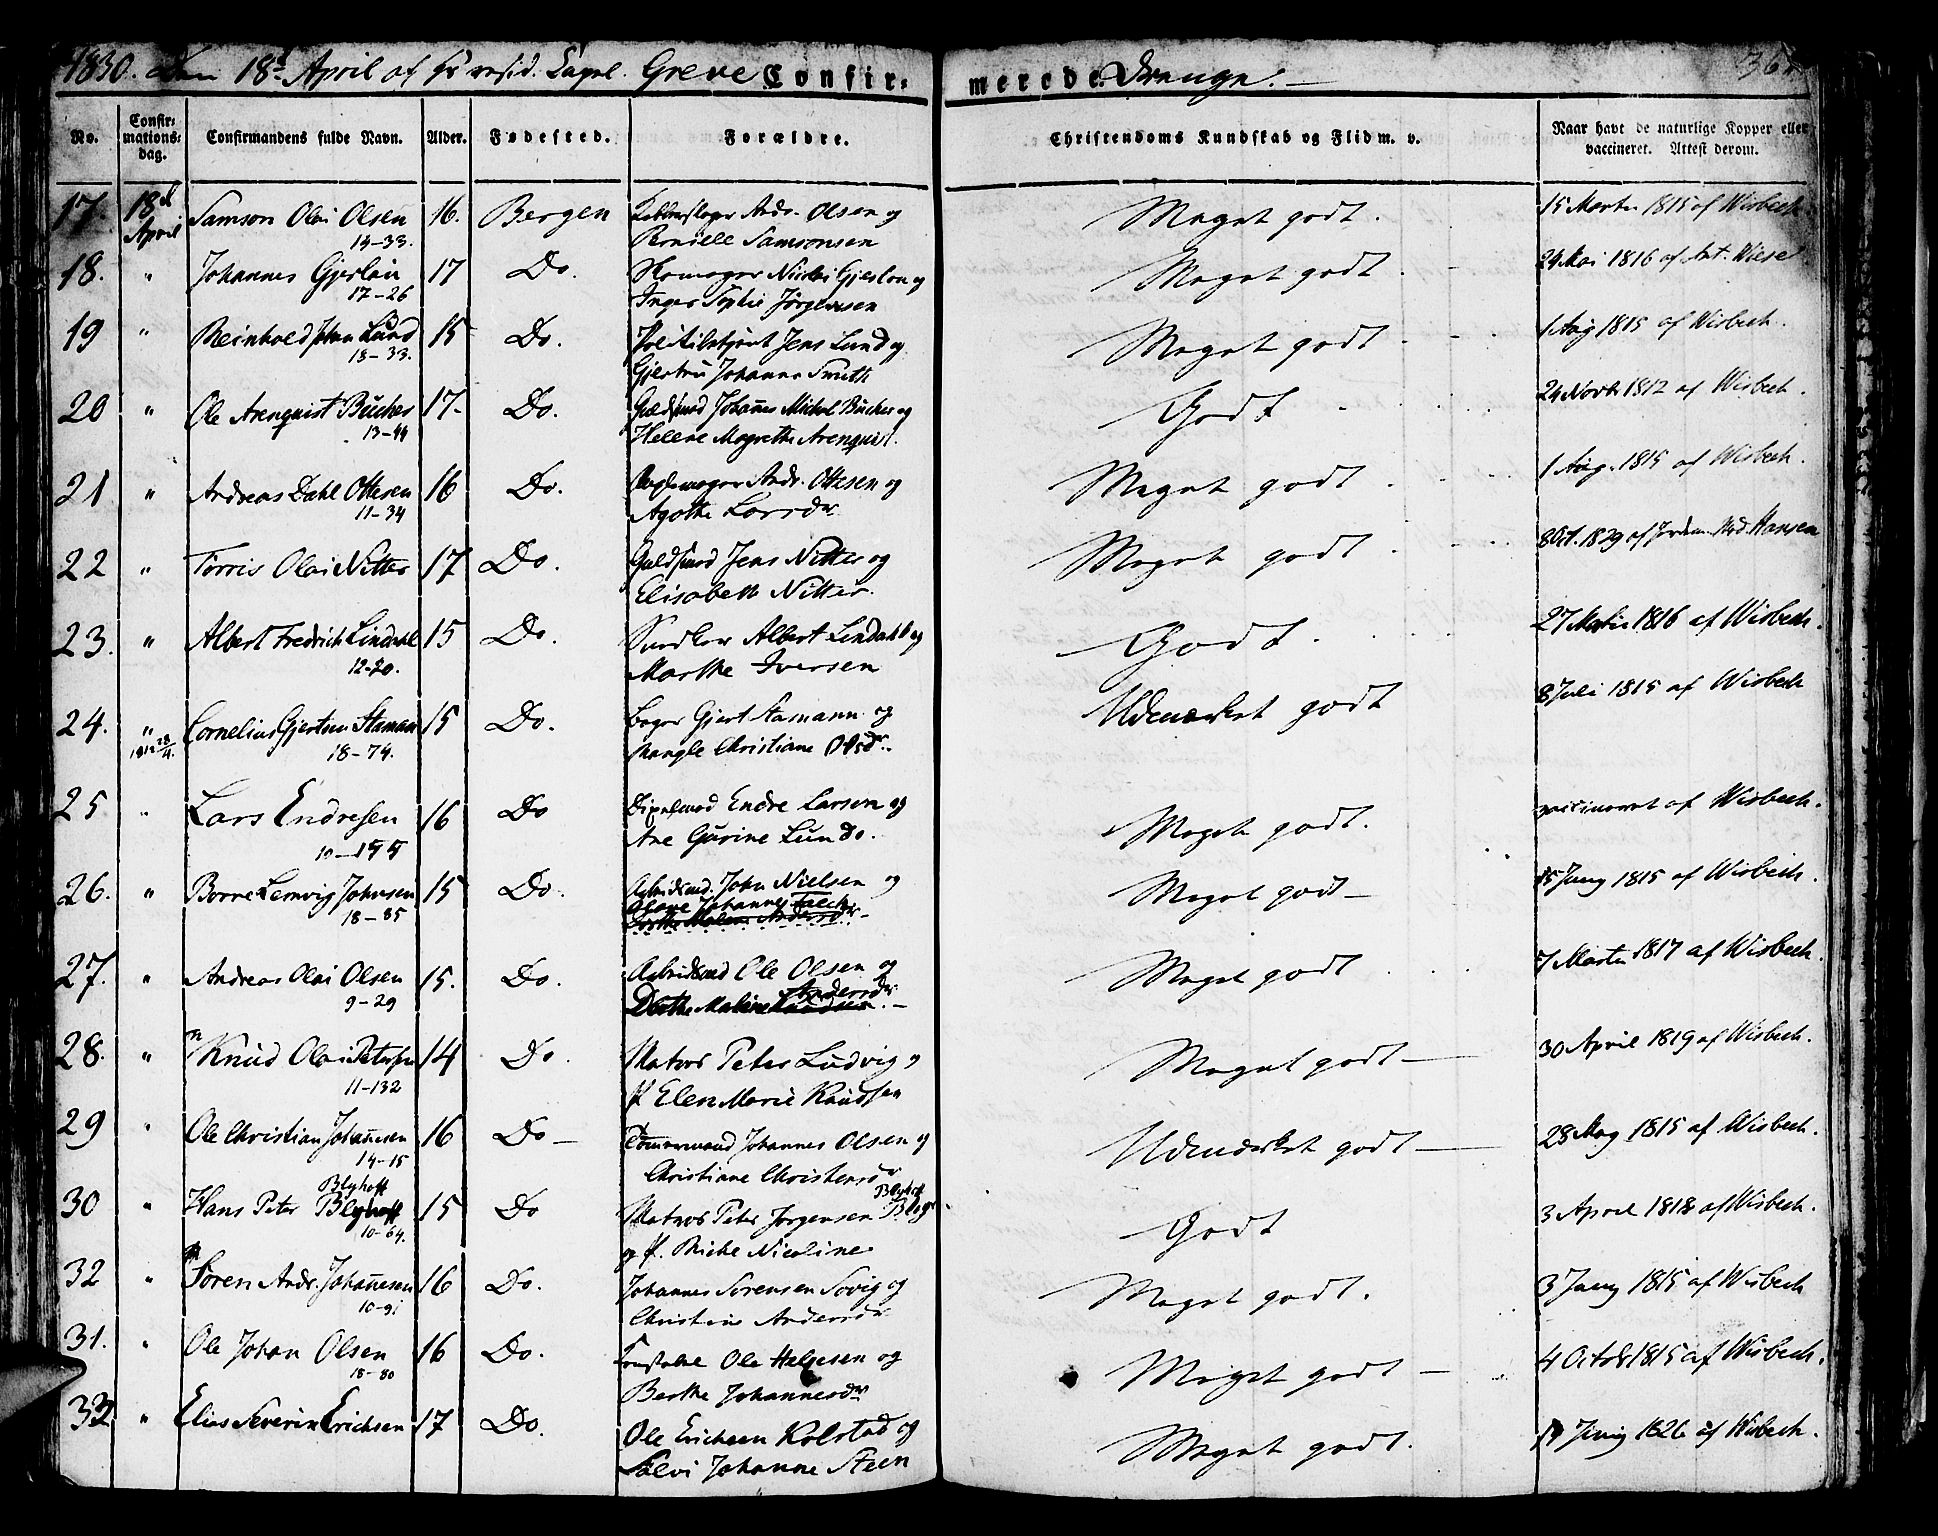 1830. Den 18d April af resid. Capel. Greve Confir- merede Drenge. 36
No. Confirmationsdag. Confirmandens fulde Navn. Alder. Fødested. Forældre. Christendoms Kundskab og Flid m. v. Naar havt de naturlige Kopper eller vaccineret. Attest derom.
17. 18d April Samson Olai Olsen 16. Bergen Andr. Olsen og Meget godt. 15 Marts 1815 af Wisbech.
14-33. Pernille Samsonsen
18. " Johannes Gjerløw 17 Do. Skomager Nicolai Gjerløw og Meget godt. 24 Mai 1816 af Ant. Wiese
17-26 Inger Sophie Jørgensen
19 " Reinhold Johan Lund 15 Do. Politibetjent Jens Lund og Meget godt 1 Aug 1815 af Wisbech.
13-33. Gjertru Johanne Smith
20 " Ole Arenquist Bücher 17. Do. Guldsmed Johannes Michal Bücher og Godt 24 Novbr 1812 af Wisbech.
13-44 Helene Magrethe Arenquist.
21 " Andreas Dahl Ottesen 16 Do. Andr. Ottesen og Meget godt. 1 Aug. 1815 af Wisbech.
11-34 Agathe Larsdr
22 " Torris Olai Nitter 17 Do. Guldsmed Jens Nitter og Meget godt 8 Oct. 1829 af Jordem. Mad. Hansen
Elisabeth Nitter.
23. " Albert Fredrich Lindahl 15 Do. Snedker Albert Lindahl og Godt 27 Martii 1816 af Wisbech.
12-20. Marthe Iversen
24. " Cornelius Gjertsen Stamann 15 Do. Bager Gjert Stamann og Udmærket godt 8 Juli 1815 af Wisbech
1812 28/4. 18-74. Mangle Christiane Olsdr.
25 " Lars Endresen 16 Do Endre Larsen og Meget godt. vaccineret af Wisbech.
10-155 Ane Gurine Lundo.
26. " Børre Lemvig Johnsen 15 Do. Arbeidsmd. John Nielsen og Meget godt 15 Juny 1815 af Wisbech.
18-35 Johanne Falch
Dorthe Malene Andersdr.
27. " Andreas Olai Olsen 15. Do. Arbeidsmd Ole Olsen og Meget godt 7 Marts 1817 af Wisbech.
9-29 Dorthe Malene Knudsen. Andersdr
28. " Knud Olai Petersen 14 Do. Matros Peter Ludvig og Meget godt 30 April 1819 af Wisbech.
11-132 P. Elen Marie Knudsen
29 " Ole Christian Johannesen 16 Do Tømmermand Johannes Olsen og Udmærket godt 28 May 1815 af Wisbech.
14-15 Christiane Christensdr
Blyhoff Blyhoff
30 " Hans Peter Blyhoff 15 Do Matros Peter Jørgensen Godt 3 April 1818 af Wisbech.
10-64. og P. Nicoline
32 " Søren Andr. Johannesen 16 Do. Johannes Sørensen Søvig og Meget godt. 3 Juny 1815 af Wisbech
10-91 Christine Andersdr
31. " Ole Johan Olsen 16 Do. Ole Helgesen og Meget godt 4 Octobr 1815 af Wisbech.
18-80 Berthe Johannesdr
33. " Elias Severin Erichsen 17 Do. Ole Erichsen Kolstad og Meget godt. 17 Juny 1826 af Wisbech.
Salvi Johanne Steen